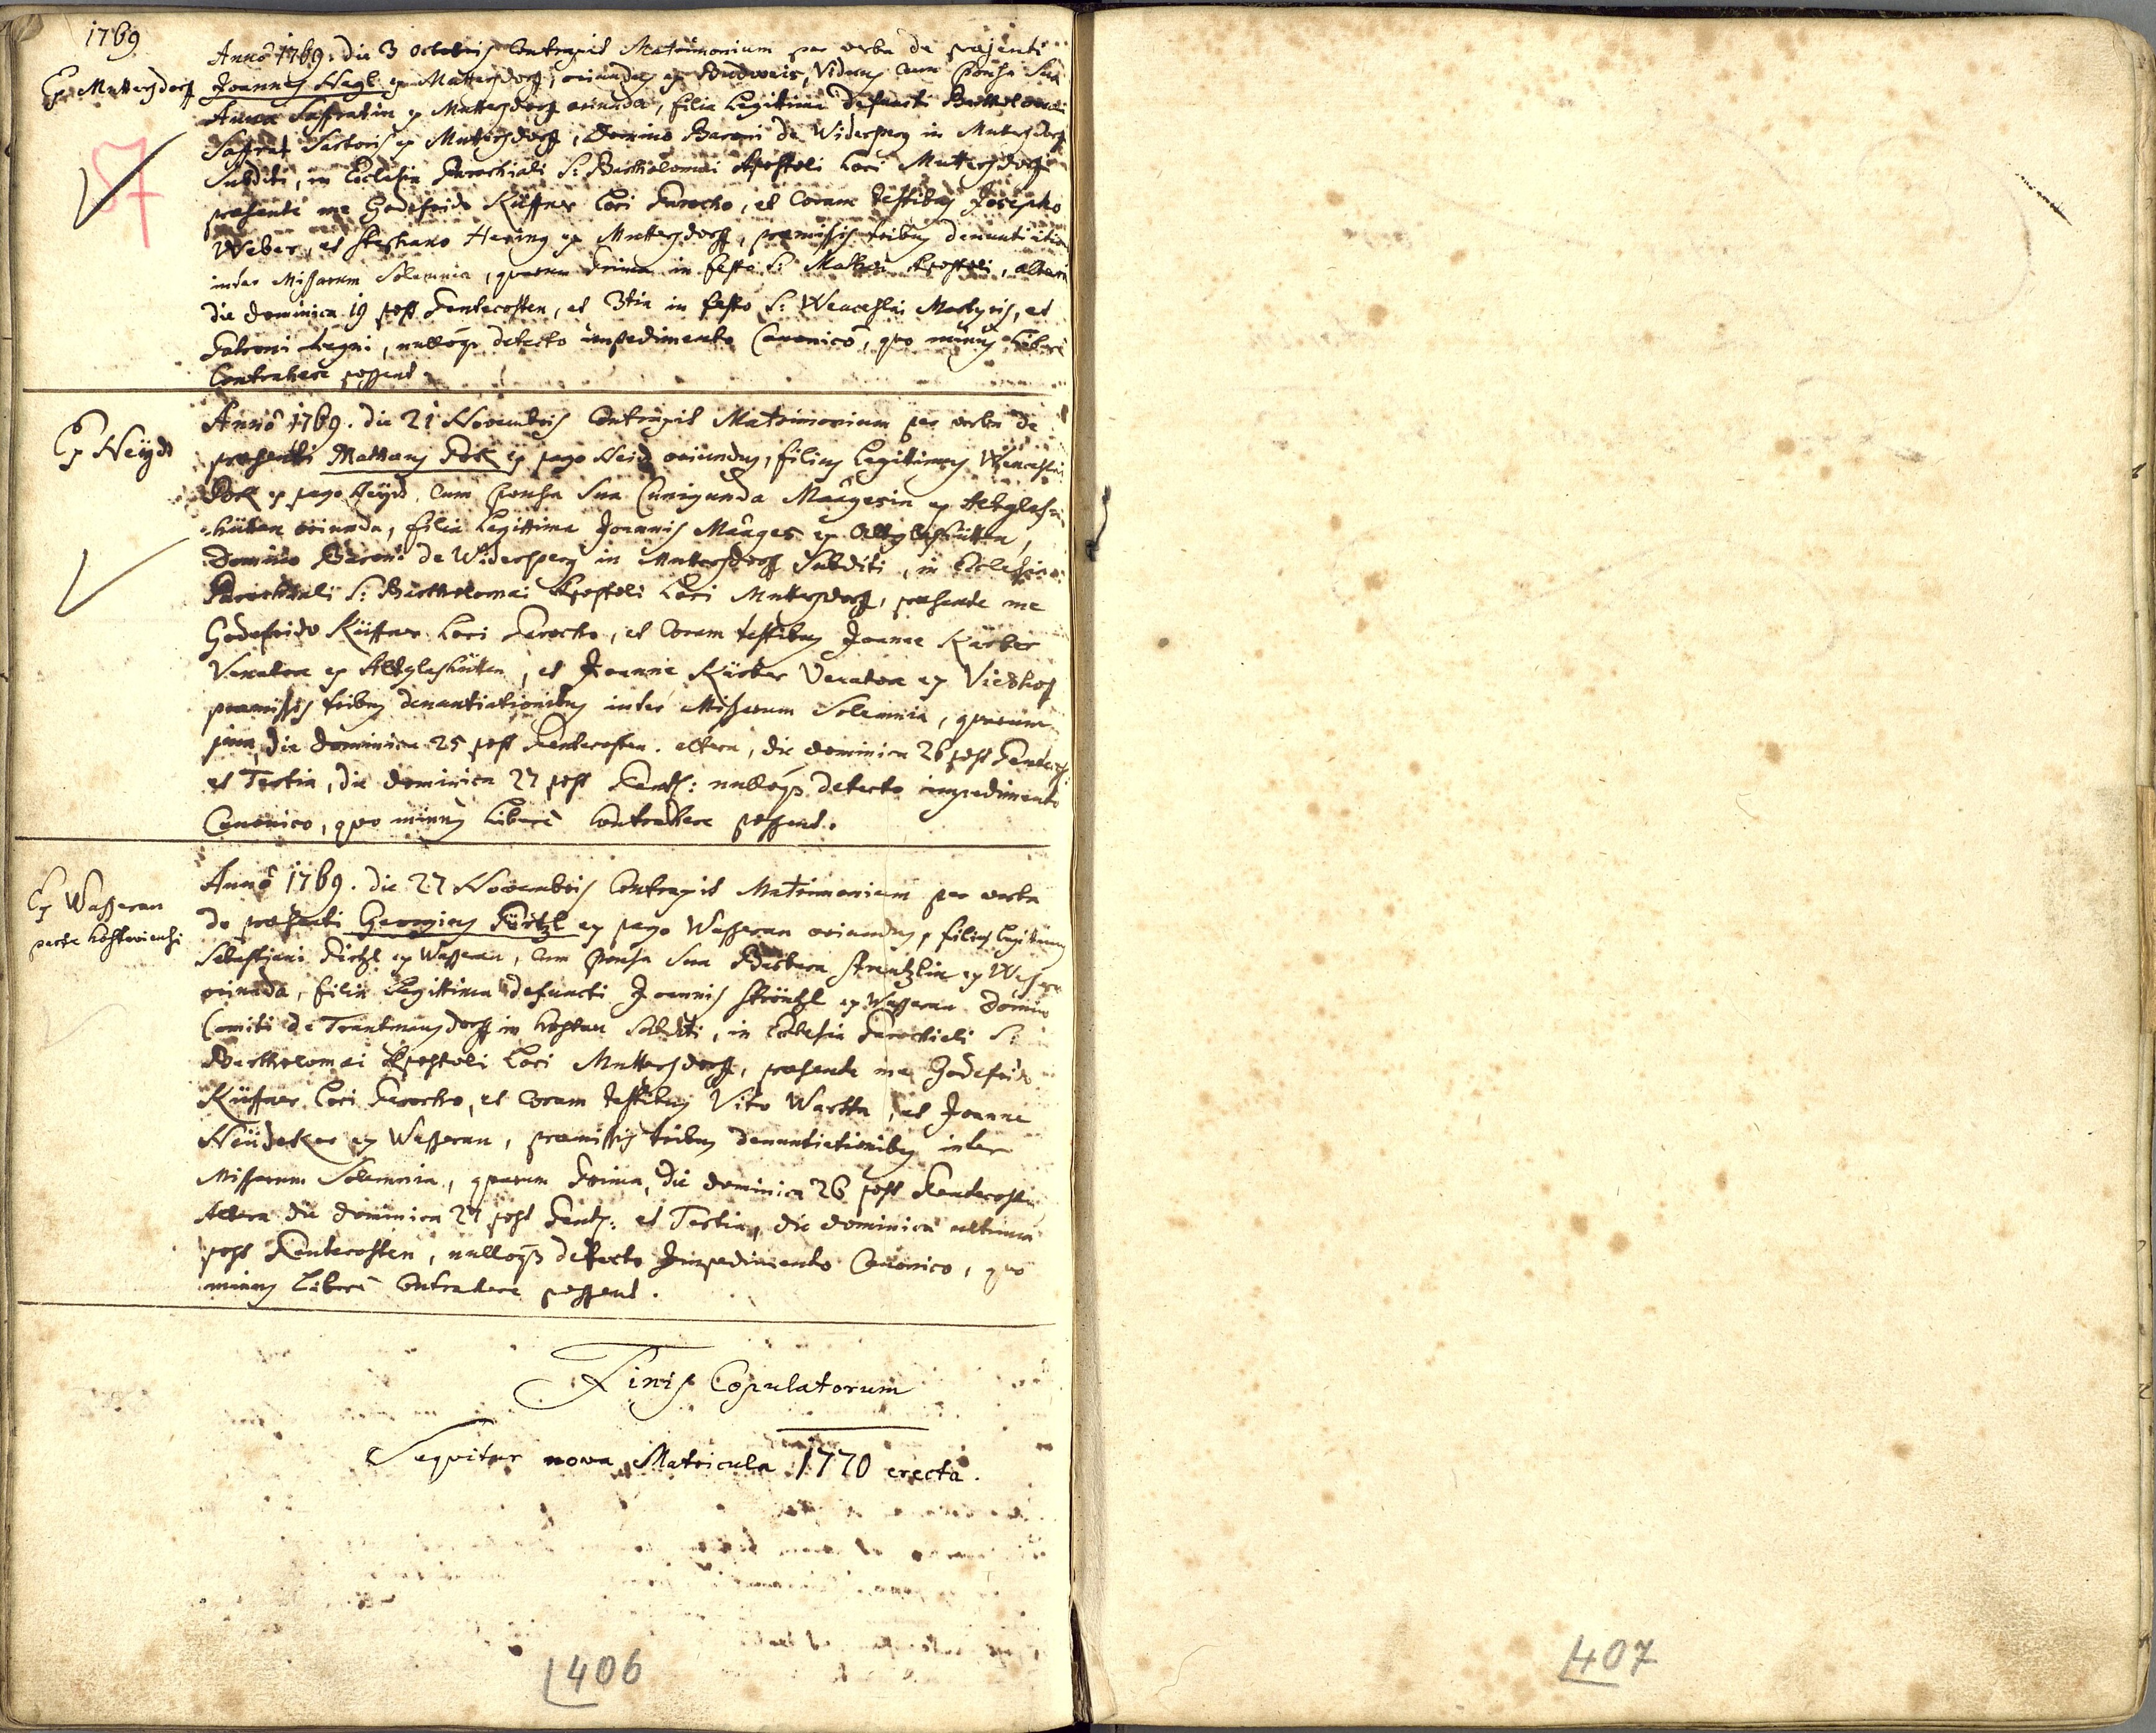 1769
Ex Muttersdorf
Anno 1769. die 3 octobris Contraxit Matrimonium per verba de præsenti
Joannes Hegl ex Muttersdorff, oriundus ex Budweis, Viduus cum Sponsa Sua
Anna Saffratin ex Muttersdorff oriunda, filia Legitima defuncti Bartholomæi
Saffrat Sartoris ex Muttersdorff, Domino Baroni de Widersperg in Muttersdorff
Subditi, in Ecclesia Parochiali S: Bartholomæi Apostoli Loci Muttersdorff
præsente me Godefrido Küffner Loci Parocho, et Coram testibus Josepho
Weber, et Stephano Hering ex Muttersdorff, præmissis tribus denuntiation
inter Missarum Solemnia, quarum Prima in festo S: Mathæi Apostoli, altera
die Dominica 19 post Pentecosten, et 3tia in festo S: Wenceslai Martyris, et
Patroni Regni, nulloq detecto impedimento Canonico, quo minus Liberè
Contrahere possent.
Ex Heÿd
Anno 1769. die 21 Novembris Contraxit Matrimonium per verba de
præsenti Mathæus Pök ex pago Heid oriundus, filius Legitimus Wenceslai
Pök ex pago Heÿd, Cum Sponsa Sua Cunigunda Maagerin ex Altglas-
hütten oriunda, filia Legittima Joannis Maager ex Altglashütten,
Domino Baroni de Widersperg in Muttersdorff Subditi, in Ecclesia
Parochiali S: Bartholomæi Apostoli Loci Muttersdorff, præsente me
Godefrido Küffner Loci Parocho, et Coram testibus Joanne Kürber
Venatore ex Altglashütten, et Joanne Kürber Venatore ex Viehhof
præmissis tribus denuntiationibus inter Missarum Solemnia, quarum
prima die Dominica 25 post Pentecosten. altera, die dominica 26 post Pentecos:
et Tertia, die Dominica 27 post Pent: nulloq detecto impedimento
Canonico, quo minus Liberè Contrahere possent.
Ex Wasserau
parte Hostoviensi
Anno 1769. die 27 Novembris Contraxit Matrimonium per verba
de præsenti Georgius Pürtzl ex pago Wasserau oriundus, filius Legitimus
Sebastiani Pirtzl ex Wasserau, Cum Sponsa Sua Barbara Strentzlin ex Wasserau
oriunda, filia Legittima defuncti Joannis Ströntzl ex Wasserau Domino
Comiti de Trautmansdorff in Hostau Subditi, in Ecclesia Parochiali S:
Bartholomæi Apostoli Loci Muttersdorff, præsente me Godefrido
Küffner Loci Parocho, et Coram testibus Vito Wartha, et Joanne
Neüdecker ex Wasserau, præmissis tribus denuntiationibus inter
Missarum Solemnia, quarum Prima, die Dominica 26 post Pentecosten
Altera die Dominica 27 post Pent: et Tertia, die Dominica ultima
post Pentecosten, nulloq detecto Impedimento Canonico, quo
minus Liberè Contrahere possent.
Finis Copulatorum
Sequitur nova Matricula 1770 erecta.
406
407